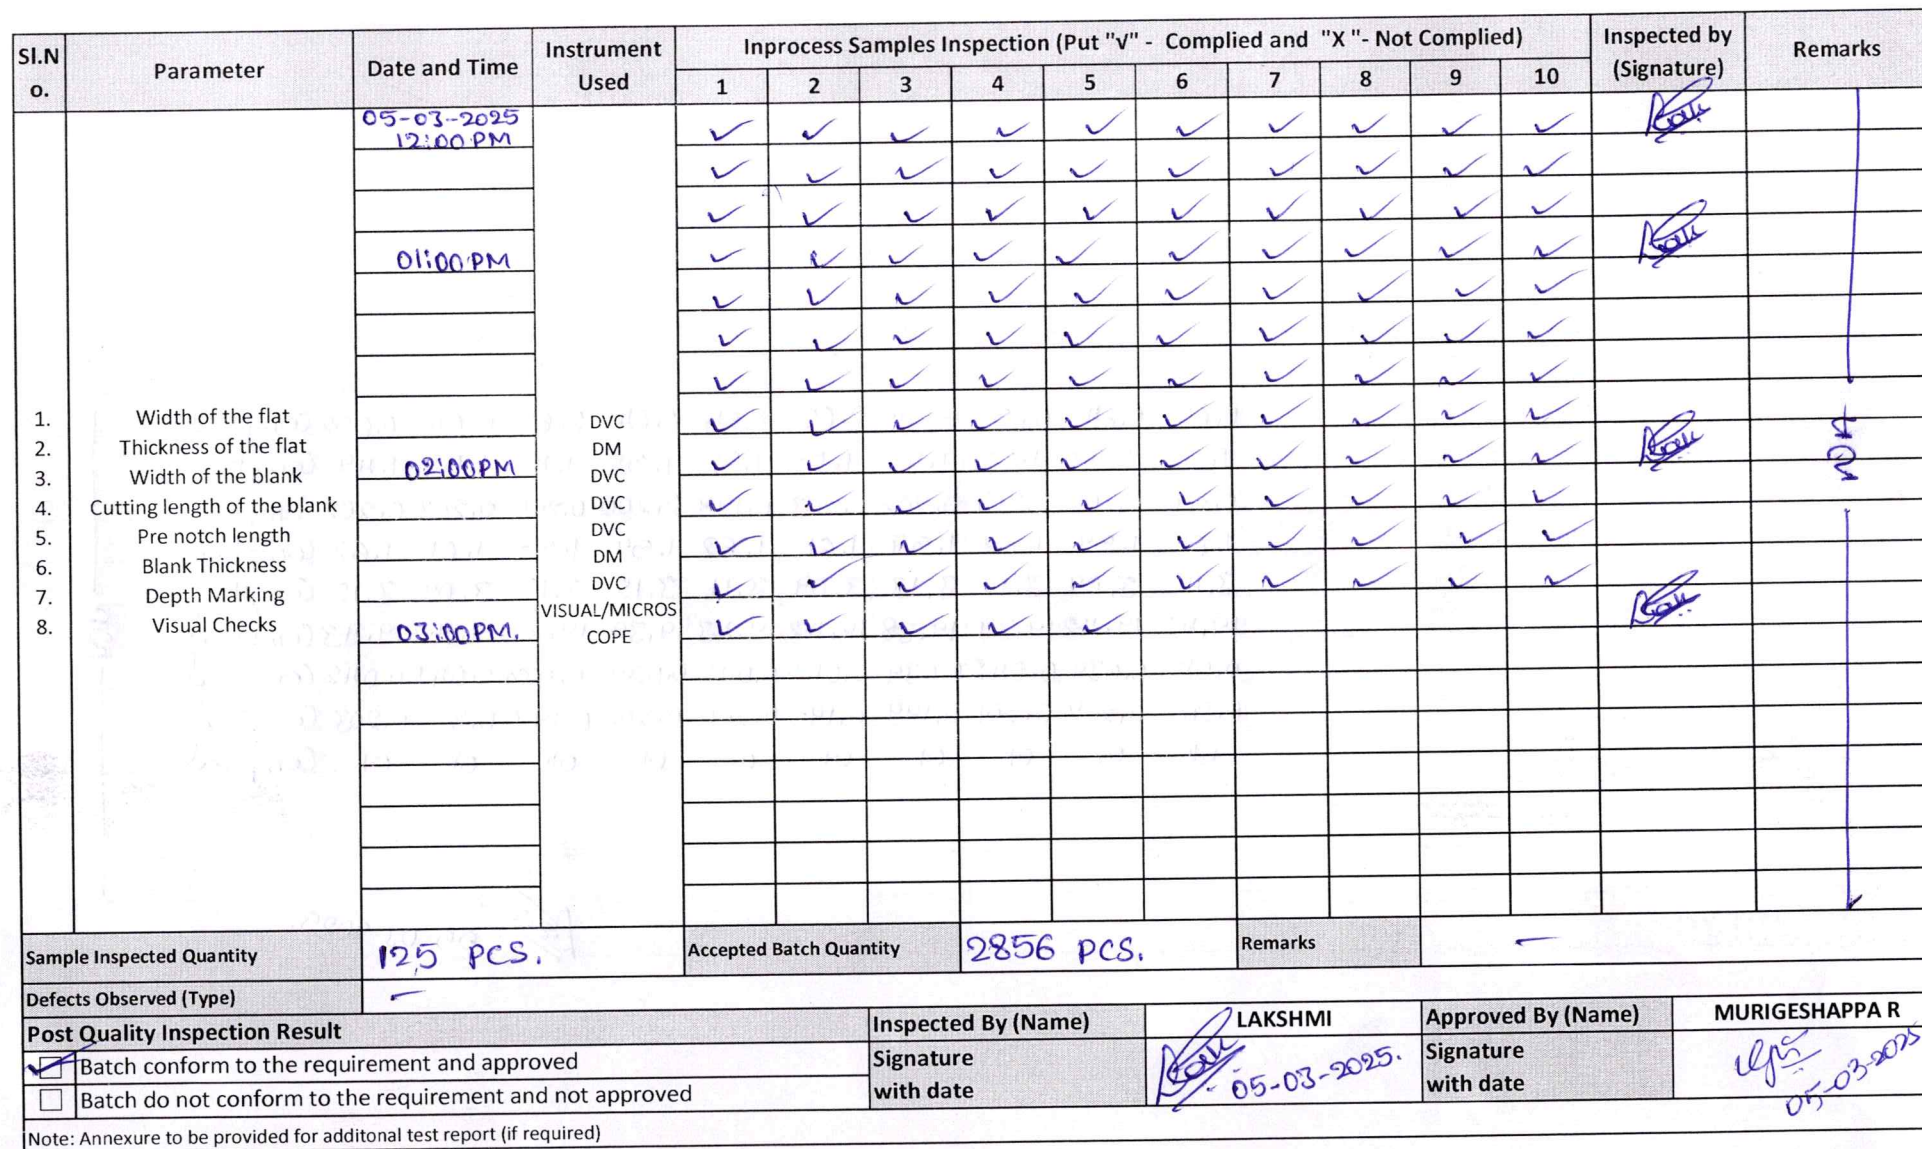 Sl.N
o.
Parameter
Date and Time
Instrument
Used
Inprocess Samples Inspection (Put "√" - Complied and "X "- Not Complied)
1 2 3 4 5 6 7 8 9 10
Inspected by
(Signature)
Remarks
05-03-2025
12:00 PM
✓ ✓ ✓ ✓ ✓ ✓ ✓ ✓ ✓ ✓
✓ ✓ ✓ ✓ ✓ ✓ ✓ ✓ ✓ ✓
✓ ✓ ✓ ✓ ✓ ✓ ✓ ✓ ✓ ✓
01:00 PM ✓ ✓ ✓ ✓ ✓ ✓ ✓ ✓ ✓ ✓
✓ ✓ ✓ ✓ ✓ ✓ ✓ ✓ ✓ ✓
✓ ✓ ✓ ✓ ✓ ✓ ✓ ✓ ✓ ✓
✓ ✓ ✓ ✓ ✓ ✓ ✓ ✓ ✓ ✓
1. Width of the flat DVC ✓ ✓ ✓ ✓ ✓ ✓ ✓ ✓ ✓ ✓
2. Thickness of the flat DM
3. Width of the blank 02:00PM DVC ✓ ✓ ✓ ✓ ✓ ✓ ✓ ✓ ✓ ✓
4. Cutting length of the blank DVC ✓ ✓ ✓ ✓ ✓ ✓ ✓ ✓ ✓ ✓
5. Pre notch length DVC ✓ ✓ ✓ ✓ ✓ ✓ ✓ ✓ ✓ ✓
6. Blank Thickness DM
7. Depth Marking DVC ✓ ✓ ✓ ✓ ✓ ✓ ✓ ✓ ✓ ✓
8. Visual Checks 03:00PM. VISUAL/MICROS
COPE ✓ ✓ ✓ ✓ ✓
Sample Inspected Quantity 125 PCS. Accepted Batch Quantity 2856 PCS. Remarks —
Defects Observed (Type) —
Post Quality Inspection Result
✓ Batch conform to the requirement and approved
Batch do not conform to the requirement and not approved
Inspected By (Name) LAKSHMI
Signature
with date 05-03-2025.
Approved By (Name) MURIGESHAPPA R
Signature
with date 05-03-2025
Note: Annexure to be provided for additonal test report (if required)